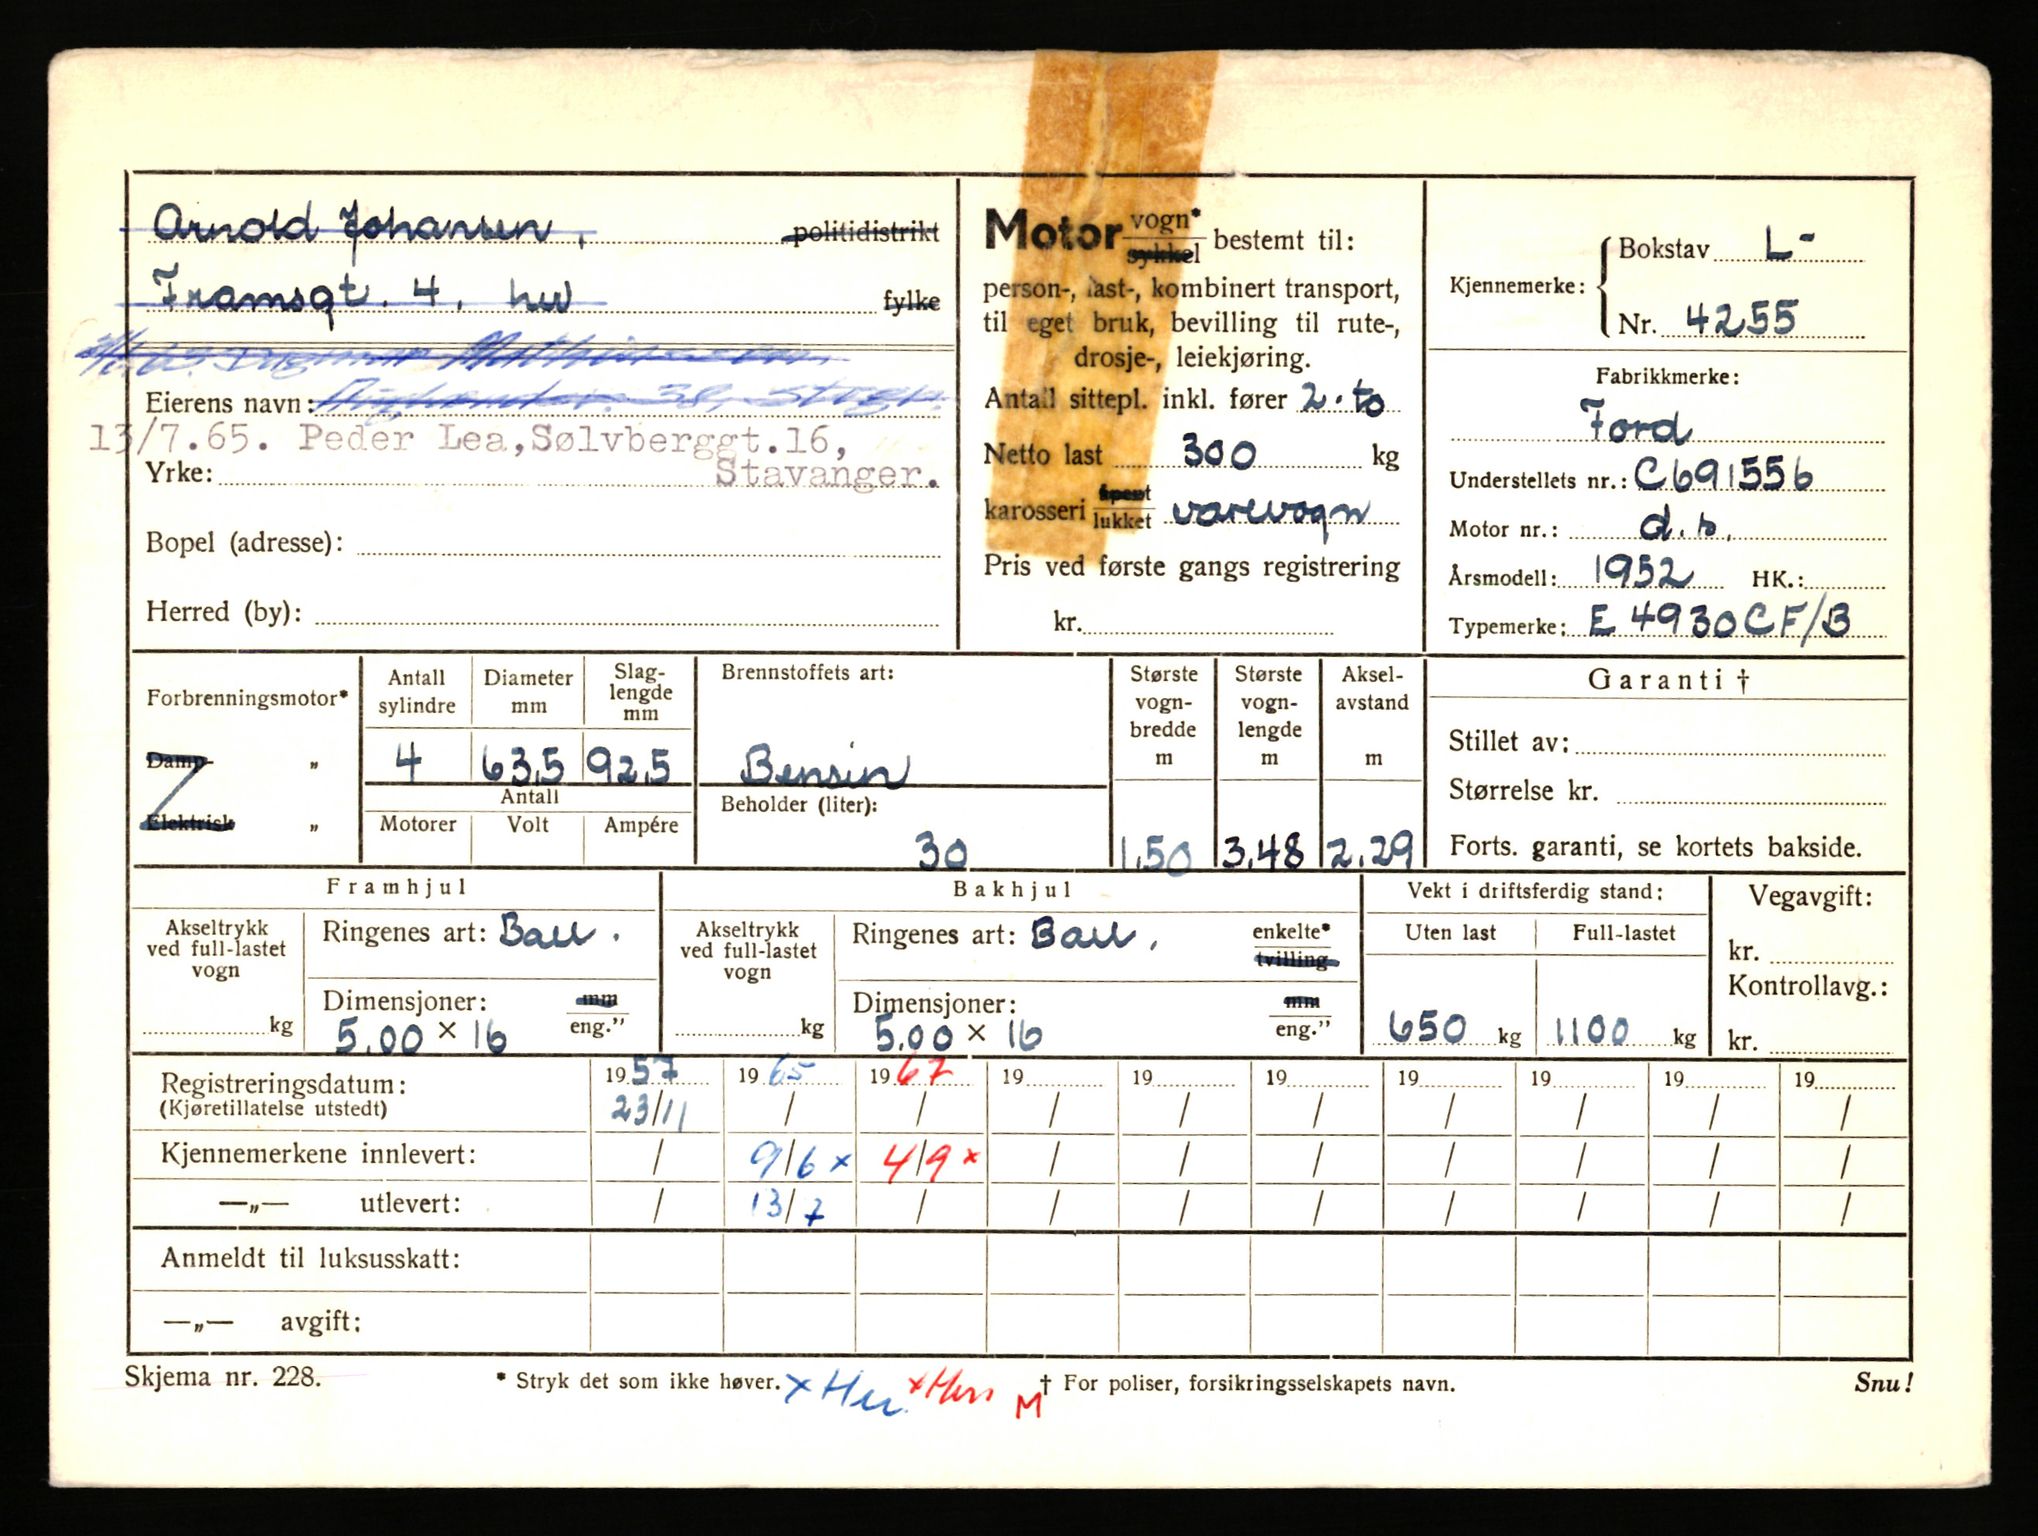 Arnold Johansen, politidistrikt
Framsgt. 4. hw fylke
Eierens navn: 38, Stvgr.
13/7.65. Peder Lea, Sølvberggt.16,
Yrke: Stavanger.
Bopel (adresse):
Herred (by):
Motor vogn* / sykkel bestemt til:
person-, last-, kombinert transport,
til eget bruk, bevilling til rute-,
drosje-, leiekjøring.
Antall sittepl. inkl. fører 2. to
Netto last 300 kg
karosseri åpent / lukket varevogn
Pris ved første gangs registrering
kr.
Kjennemerke: Bokstav L-
Nr. 4255
Fabrikkmerke:
Ford
Understellets nr.: C691556
Motor nr.: d.s.
Årsmodell: 1952 HK.:
Typemerke: E 4930CF/B
Forbrenningsmotor*
Damp- „
Elektrisk „
Antall sylindre
4
Diameter mm
63,5
Slag-lengde mm
92,5
Antall
Motorer Volt Ampére
Brennstoffets art:
Bensin
Beholder (liter):
30
Største vogn-bredde m
1,50
Største vogn-lengde m
3,48
Aksel-avstand m
2,29
Garanti †
Stillet av:
Størrelse kr.
Forts. garanti, se kortets bakside.
Framhjul
Akseltrykk ved full-lastet vogn
kg
Ringenes art: Ball.
Dimensjoner: mm / eng."
5.00 × 16
Bakhjul
Akseltrykk ved full-lastet vogn
kg
Ringenes art: Ball. enkelte* / tvilling
Dimensjoner: mm / eng."
5.00 × 16
Vekt i driftsferdig stand:
Uten last Full-lastet
650 kg 1100 kg
Vegavgift:
kr.
Kontrollavg.:
kr.
Registreringsdatum: 1957 1965 1967 19 19 19 19 19 19 19
(Kjøretillatelse utstedt) 23/11 / / / / / / / / /
Kjennemerkene innlevert: / 9/6 x 4/9 x / / / / / / /
—„— utlevert: / 13/7 / / / / / / / /
Anmeldt til luksusskatt:
—„— avgift:
Skjema nr. 228. * Stryk det som ikke høver. x x M † For poliser, forsikringsselskapets navn. Snu!